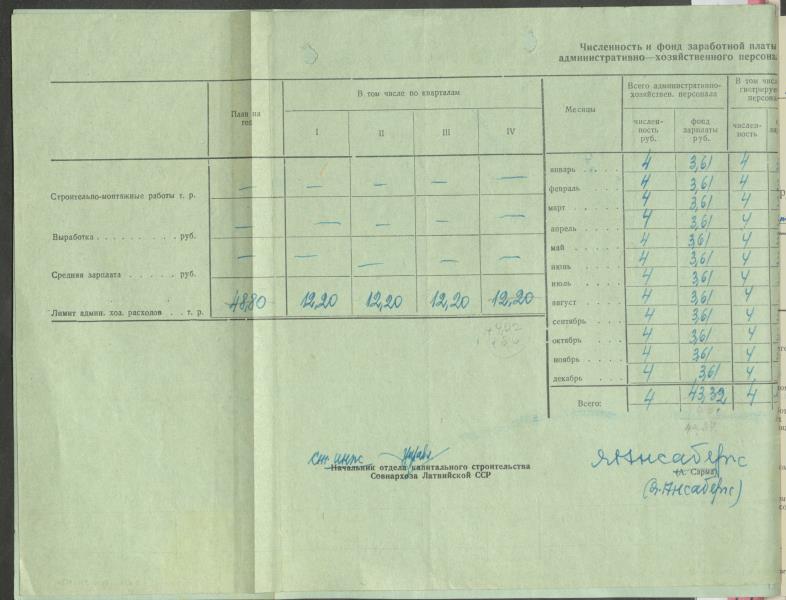 Численность и фонд заработной платы
административно—хозяйственного персона
План на
год
В том числе по кварталам
I II III IV
Месяцы
Всего административно-
хозяйствен. персонала
В том числ
персона
числен-
ность
руб.
фонд
зарплаты
руб.
числен-
ность
Строительно-монтажные работы т. р. — — — — —
Выработка . . . . . . . . . . руб. — — — — —
Средняя зарплата . . . . . . руб. — — — — —
Лимит админ. хоз. расходов . . т. р. 48,80 12,20 12,20 12,20 12,20
январь . . . . 4 3,61 4
февраль . . . . 4 3,61 4
март . . . . 4 3,61 4
апрель . . . . 4 3,61 4
май . . . . 4 3,61 4
июнь . . . . 4 3,61 4
июль . . . . 4 3,61 4
август . . . . 4 3,61 4
сентябрь . . . . 4 3,61 4
октябрь . . . . 4 3,61 4
ноябрь . . . . 4 3,61 4
декабрь . . . . 4 3,61 4
Всего: 4 43,32 4
ст. инж
Начальник отдела капитального строительства
Совнархоза Латвийской ССР
(А. Сарма)